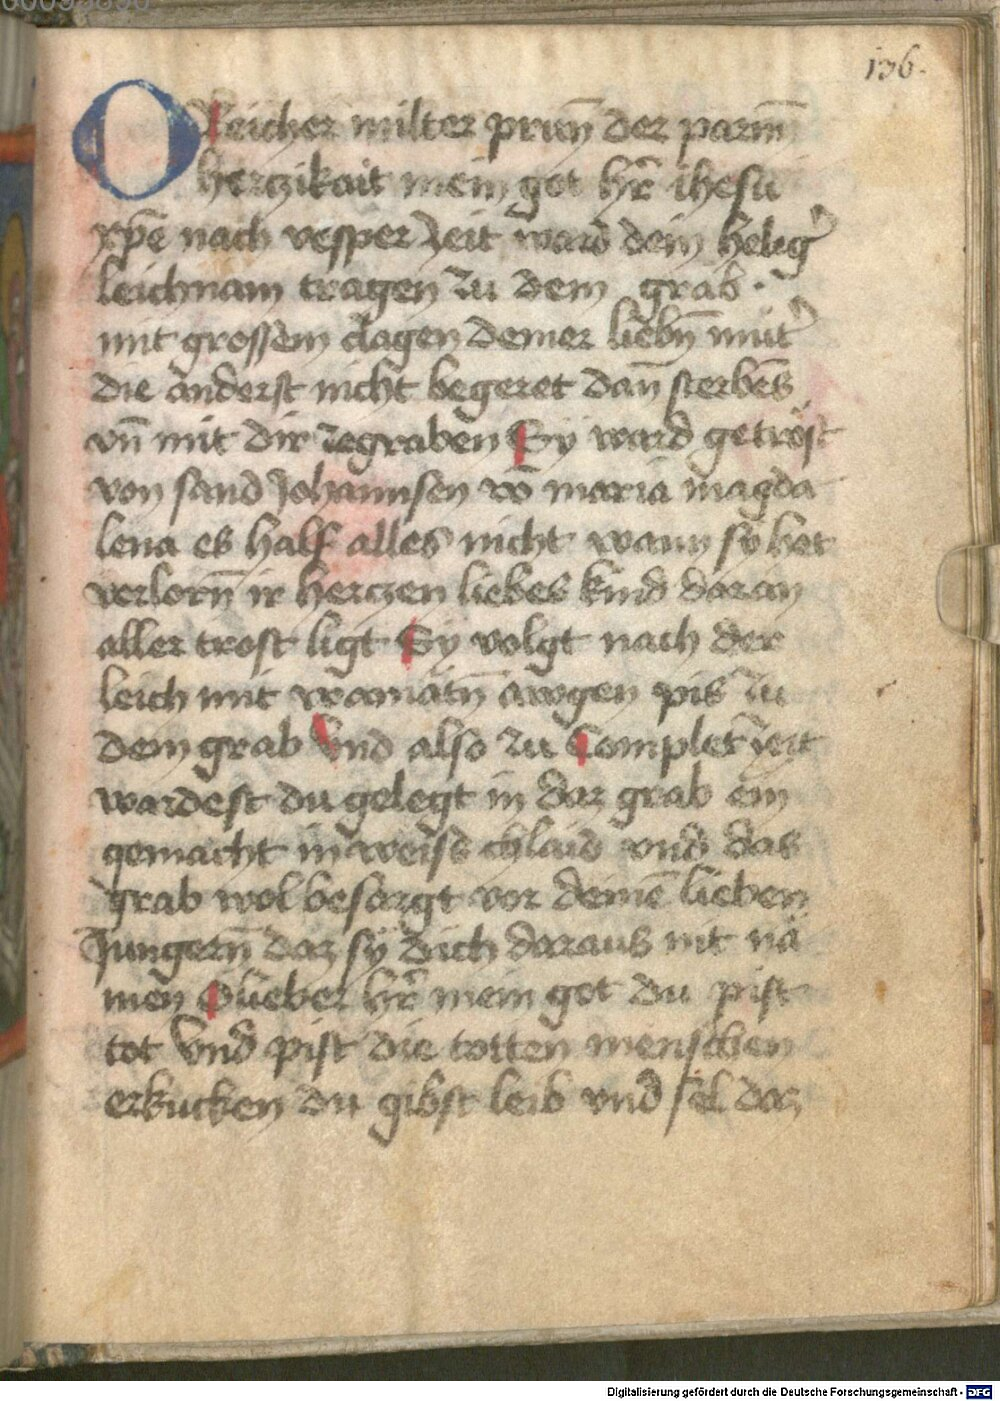 136.
O Reicher milter prun̄ der parm̄
herczikait mein got hr̄ ihesu
xp̄e nach vesper zeit ward dein heilig̉
leichnam tragen zu dem grab ·
mit grossem clagen deiner liebn̄ mut̉
die anderst nicht begeret dan̄ sterbēs
vn̄ mit dir zegraben Sy ward getröst
von sand Johannsen vō maria magda
lena es half alles nicht wann sy het
verlorn̄ ir herczen liebes kind daran
aller trost ligt Sy volgt nach der
leich mit wainātn̄ awgen pis zu
dem grab Vnd also zu Complet zeit
wardest du gelegt in daz grab ein
gemacht in weiss chlaid vnd das
grab wol besorgt vor deinē lieben
Jungern̄ daz sy dich daraus nit nā
men O lieber hr̄ mein got du pist
tot Vnd pist die totten menschen
erkucken du gibst leib vnd sel daz
Digitalisierung gefördert durch die Deutsche Forschungsgemeinschaft - DFG